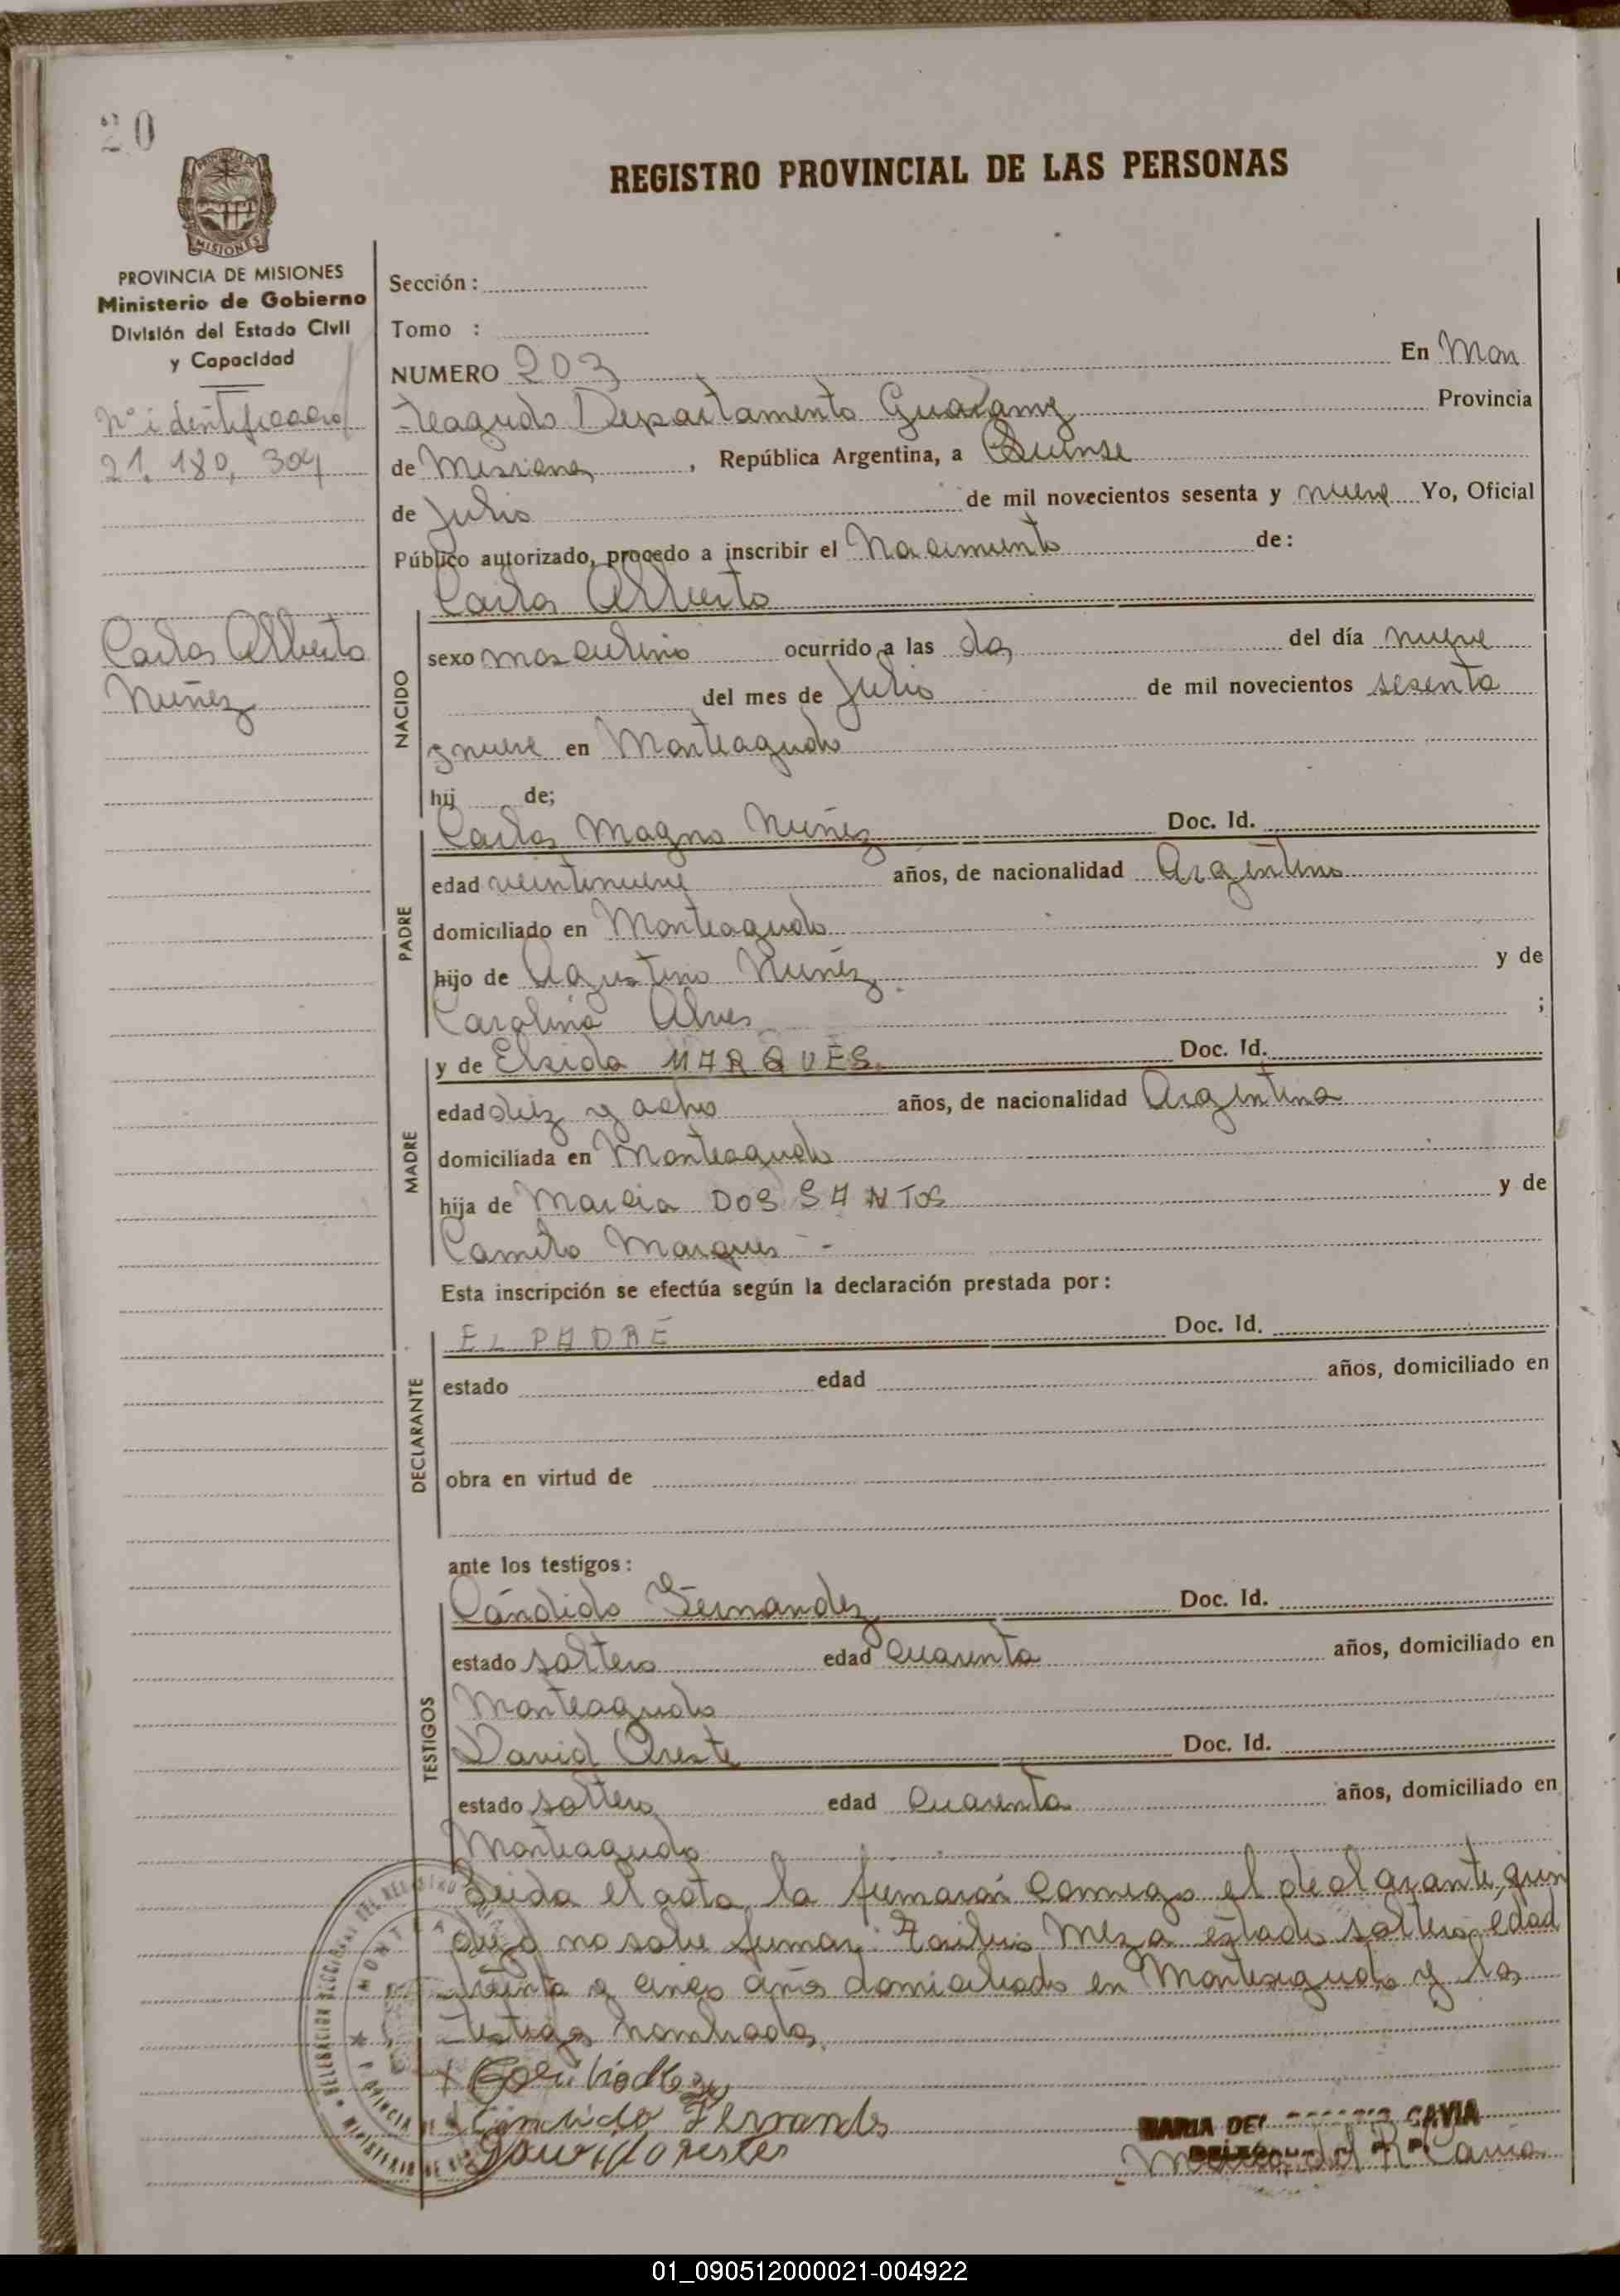 20
PROVINCIA DE
MISIONES
REGISTRO PROVINCIAL DE LAS PERSONAS
PROVINCIA DE MISIONES
Ministerio de Gobierno
División del Estado Civil
y Capacidad
Sección :
Tomo :
NUMERO 203 En Mon
teagudo Departamento Guarany Provincia
Nº identificacion
21.180.304
de Misiones , República Argentina, a Quinse
de Julio de mil novecientos sesenta y nueve Yo, Oficial
Público autorizado, procedo a inscribir el Nacimiento de:
Carlos Alberto
Carlos Alberto
Nuñez
NACIDO
sexo masculino ocurrido a las dos del día nueve
del mes de Julio de mil novecientos sesenta
y nueve en Monteagudo
hij de;
PADRE
Carlos Magno Nuñez Doc. Id.
edad veintinueve años, de nacionalidad Argentino
domiciliado en Monteagudo
hijo de Agustino Nuñez y de
Carolina Alves ;
MADRE
y de Elzida MARQUES. Doc. Id.
edad diez y ocho años, de nacionalidad Argentina
domiciliada en Monteagudo
hija de Marcia DOS SANTOS y de
Camilo Marques -
Esta inscripción se efectúa según la declaración prestada por:
DECLARANTE
EL PADRE Doc. Id.
estado edad años, domiciliado en
obra en virtud de
ante los testigos:
TESTIGOS
Cándido Fernandez Doc. Id.
estado soltero edad cuarenta años, domiciliado en
Monteagudo
David Oreste Doc. Id.
estado soltero edad cuarenta años, domiciliado en
Monteagudo
Leida el acta la firmarán conmigo el declarante, quien
dijo no sabe firmar: Meza estado soltero edad
treinta y cinco años domiciliado en Monteagudo y los
testigos nombrados.
Cándido Fernandes
David orestes
MARIA DEL CAVIA
Maria del R. Cavia
01_090512000021-004922